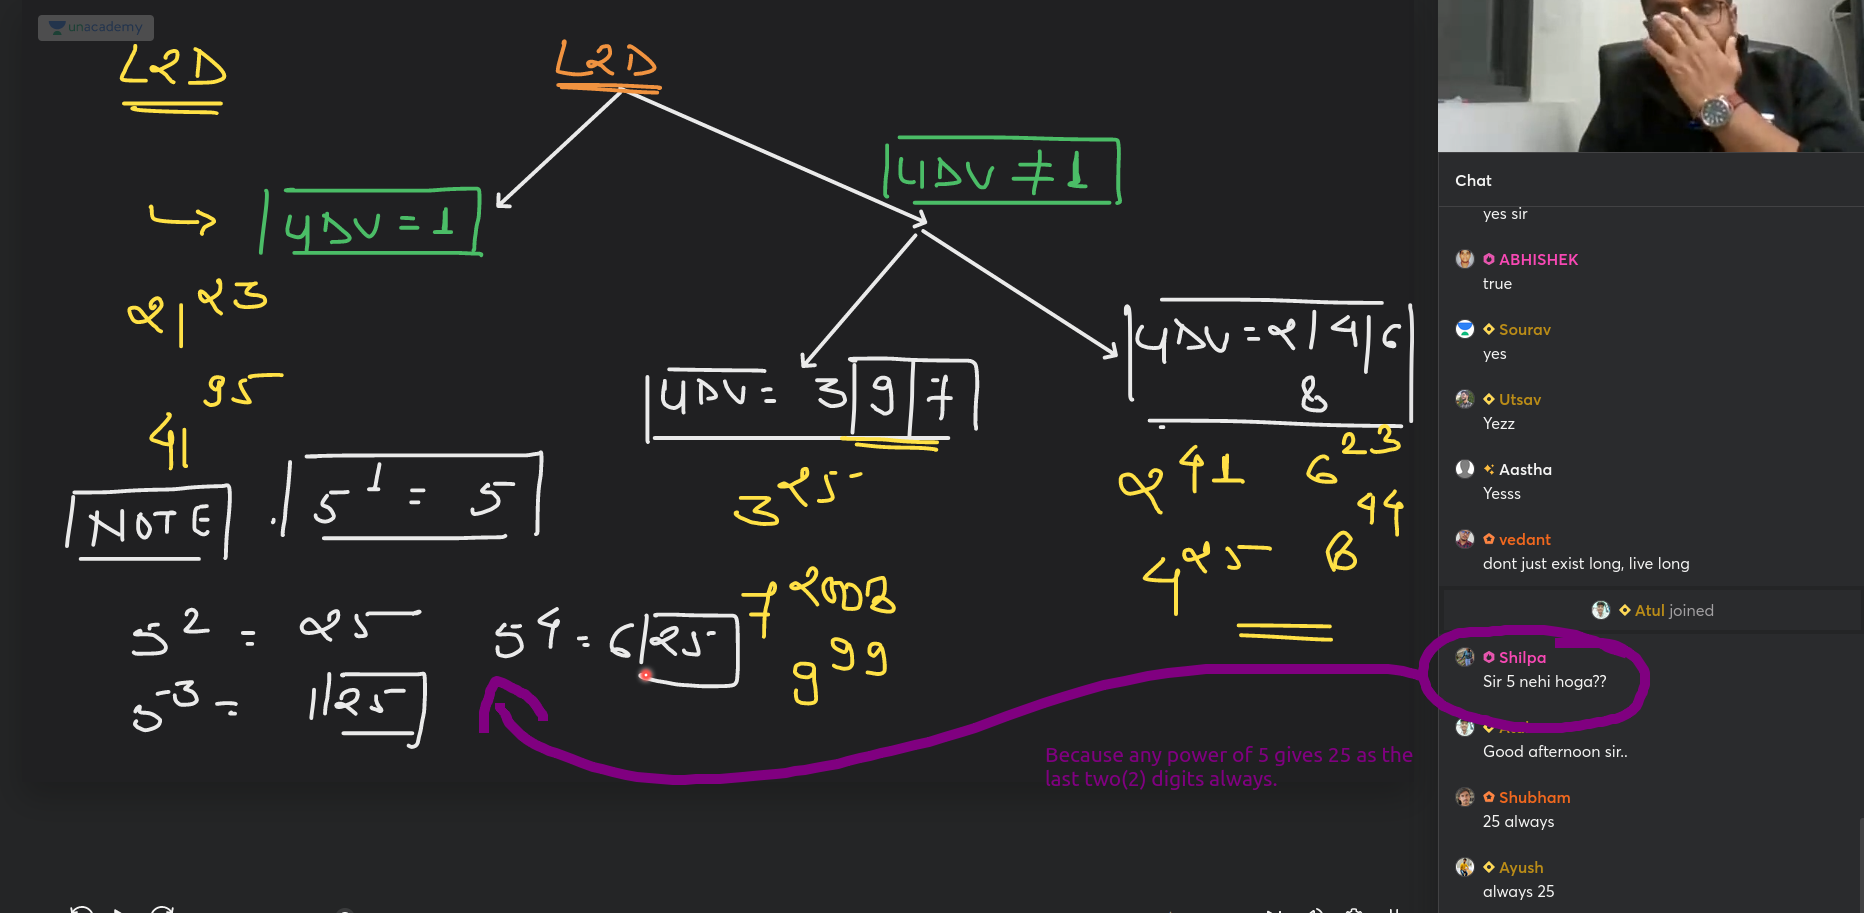 unacademy
L2D
L2D
UDV = 1
UDV ≠ 1
21^23
41^95
UDV = 3 9 7
UDV = 2/4/6
8
NOTE
5^1 = 5
3^25
2^41 6^23
4^25 8^44
5^2 = 25
5^4 = 625
7^2008
9^99
5^3 = 125
Because any power of 5 gives 25 as the
last two(2) digits always.
Chat
yes sir
ABHISHEK
true
Sourav
yes
Utsav
Yezz
Aastha
Yesss
vedant
dont just exist long, live long
Atul joined
Shilpa
Sir 5 nehi hoga??
Good afternoon sir..
Shubham
25 always
Ayush
always 25